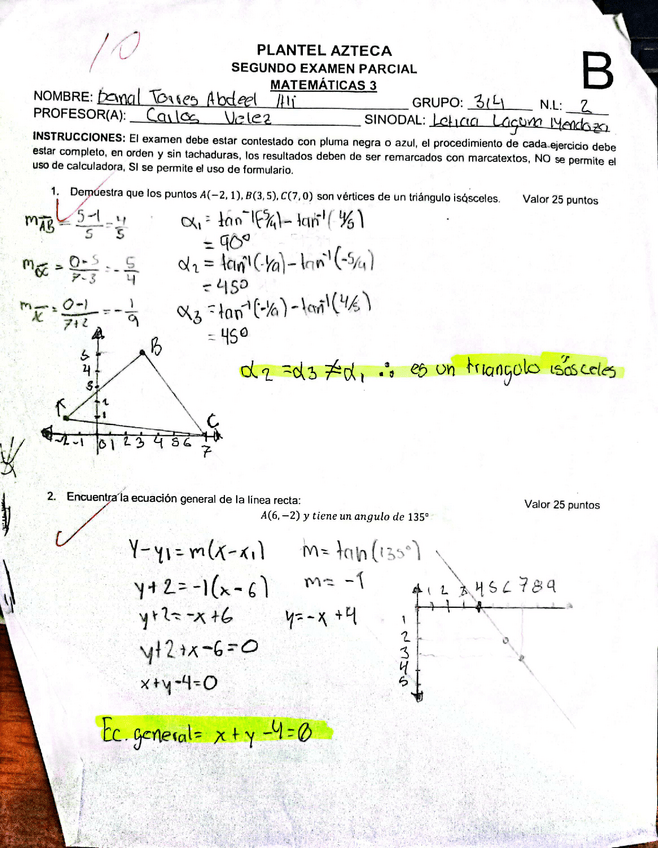 10
PLANTEL AZTECA
SEGUNDO EXAMEN PARCIAL
MATEMÁTICAS 3
B
NOMBRE: Bernal Torres Abdeel Alí GRUPO: 314 N.L: 2
PROFESOR(A): Carlos Velez SINODAL: Leticia Laguna Mendoza
INSTRUCCIONES: El examen debe estar contestado con pluma negra o azul, el procedimiento de cada ejercicio debe
estar completo, en orden y sin tachaduras, los resultados deben de ser remarcados con marcatextos, NO se permite el
uso de calculadora, SI se permite el uso de formulario.
1. Demuestra que los puntos A(−2, 1), B(3, 5), C(7, 0) son vértices de un triángulo isósceles. Valor 25 puntos
m AB = 5-1/5 = 4/5
α₁ = tan⁻¹(-5/4) - tan⁻¹(4/5)
= 90°
m BC = 0-5/7-3 = -5/4
α₂ = tan⁻¹(-1/9) - tan⁻¹(-5/4)
= 45°
m AC = 0-1/7+2 = -1/9
α₃ = tan⁻¹(-1/9) - tan⁻¹(4/5)
= 45°
α2 = α3 ≠ α1 ∴ es un triangulo isósceles
B
5
4
3
2
1
A
C
-2 -1 0 1 2 3 4 5 6 7
2. Encuentra la ecuación general de la línea recta: Valor 25 puntos
A(6, −2) y tiene un angulo de 135°
y-y1=m(x-x1) m=tan(135°)
y+2=-1(x-6) m=-1
y+2=-x+6 y=-x+4
y+2+x-6=0
x+y-4=0
1 2 3 4 5 6 7 8 9
1
2
3
4
5
Ec. general= x+y-4=0